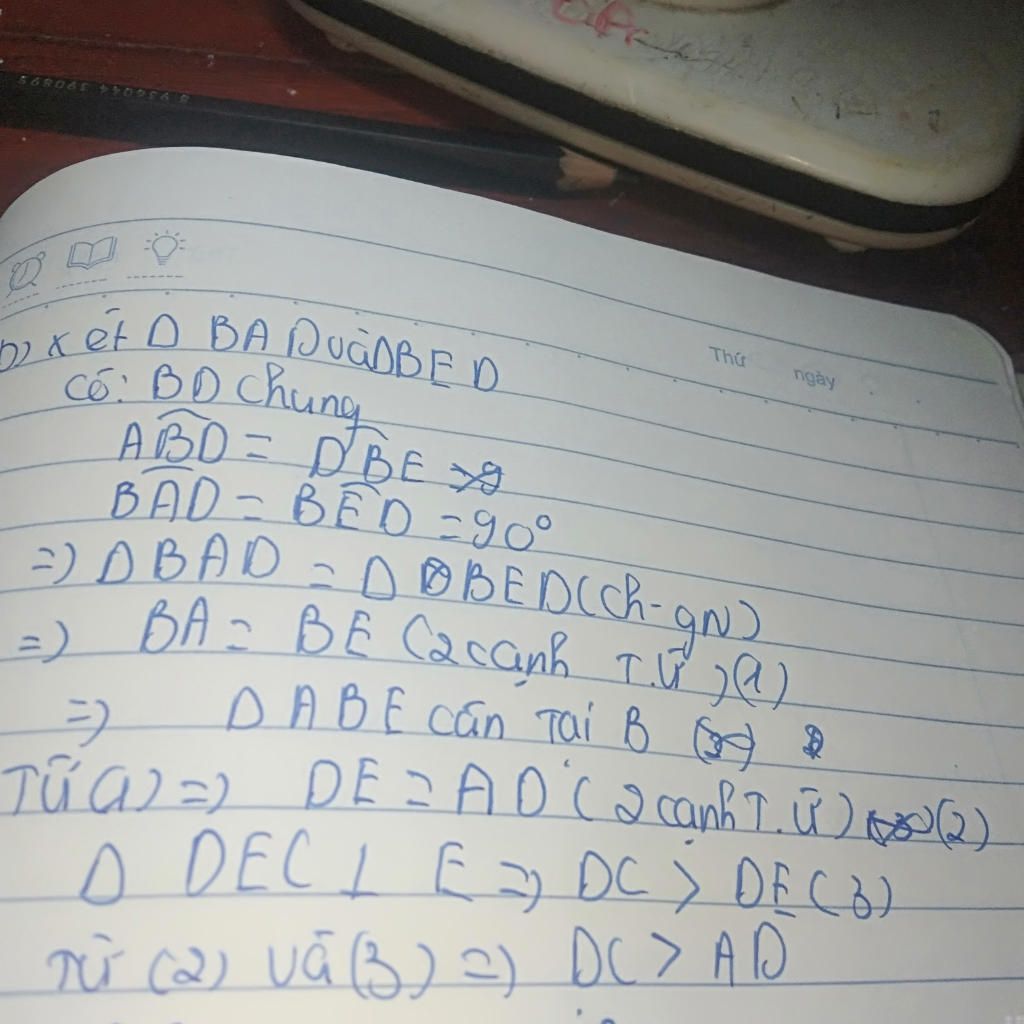 8 934044 390893
Thứ ngày
b) xét Δ BAD và Δ BED
có: BD chung
ABD = DBE
BAD = BED = 90°
=> Δ BAD = Δ BED (ch-gN)
=> BA = BE (2 cạnh T.Ư) (1)
=> Δ ABE cân Tại B
Từ (1) => DE = AD (2 cạnh T.Ư) (2)
Δ DEC ⊥ E => DC > DE (3)
Từ (2) Và (3) => DC > AD